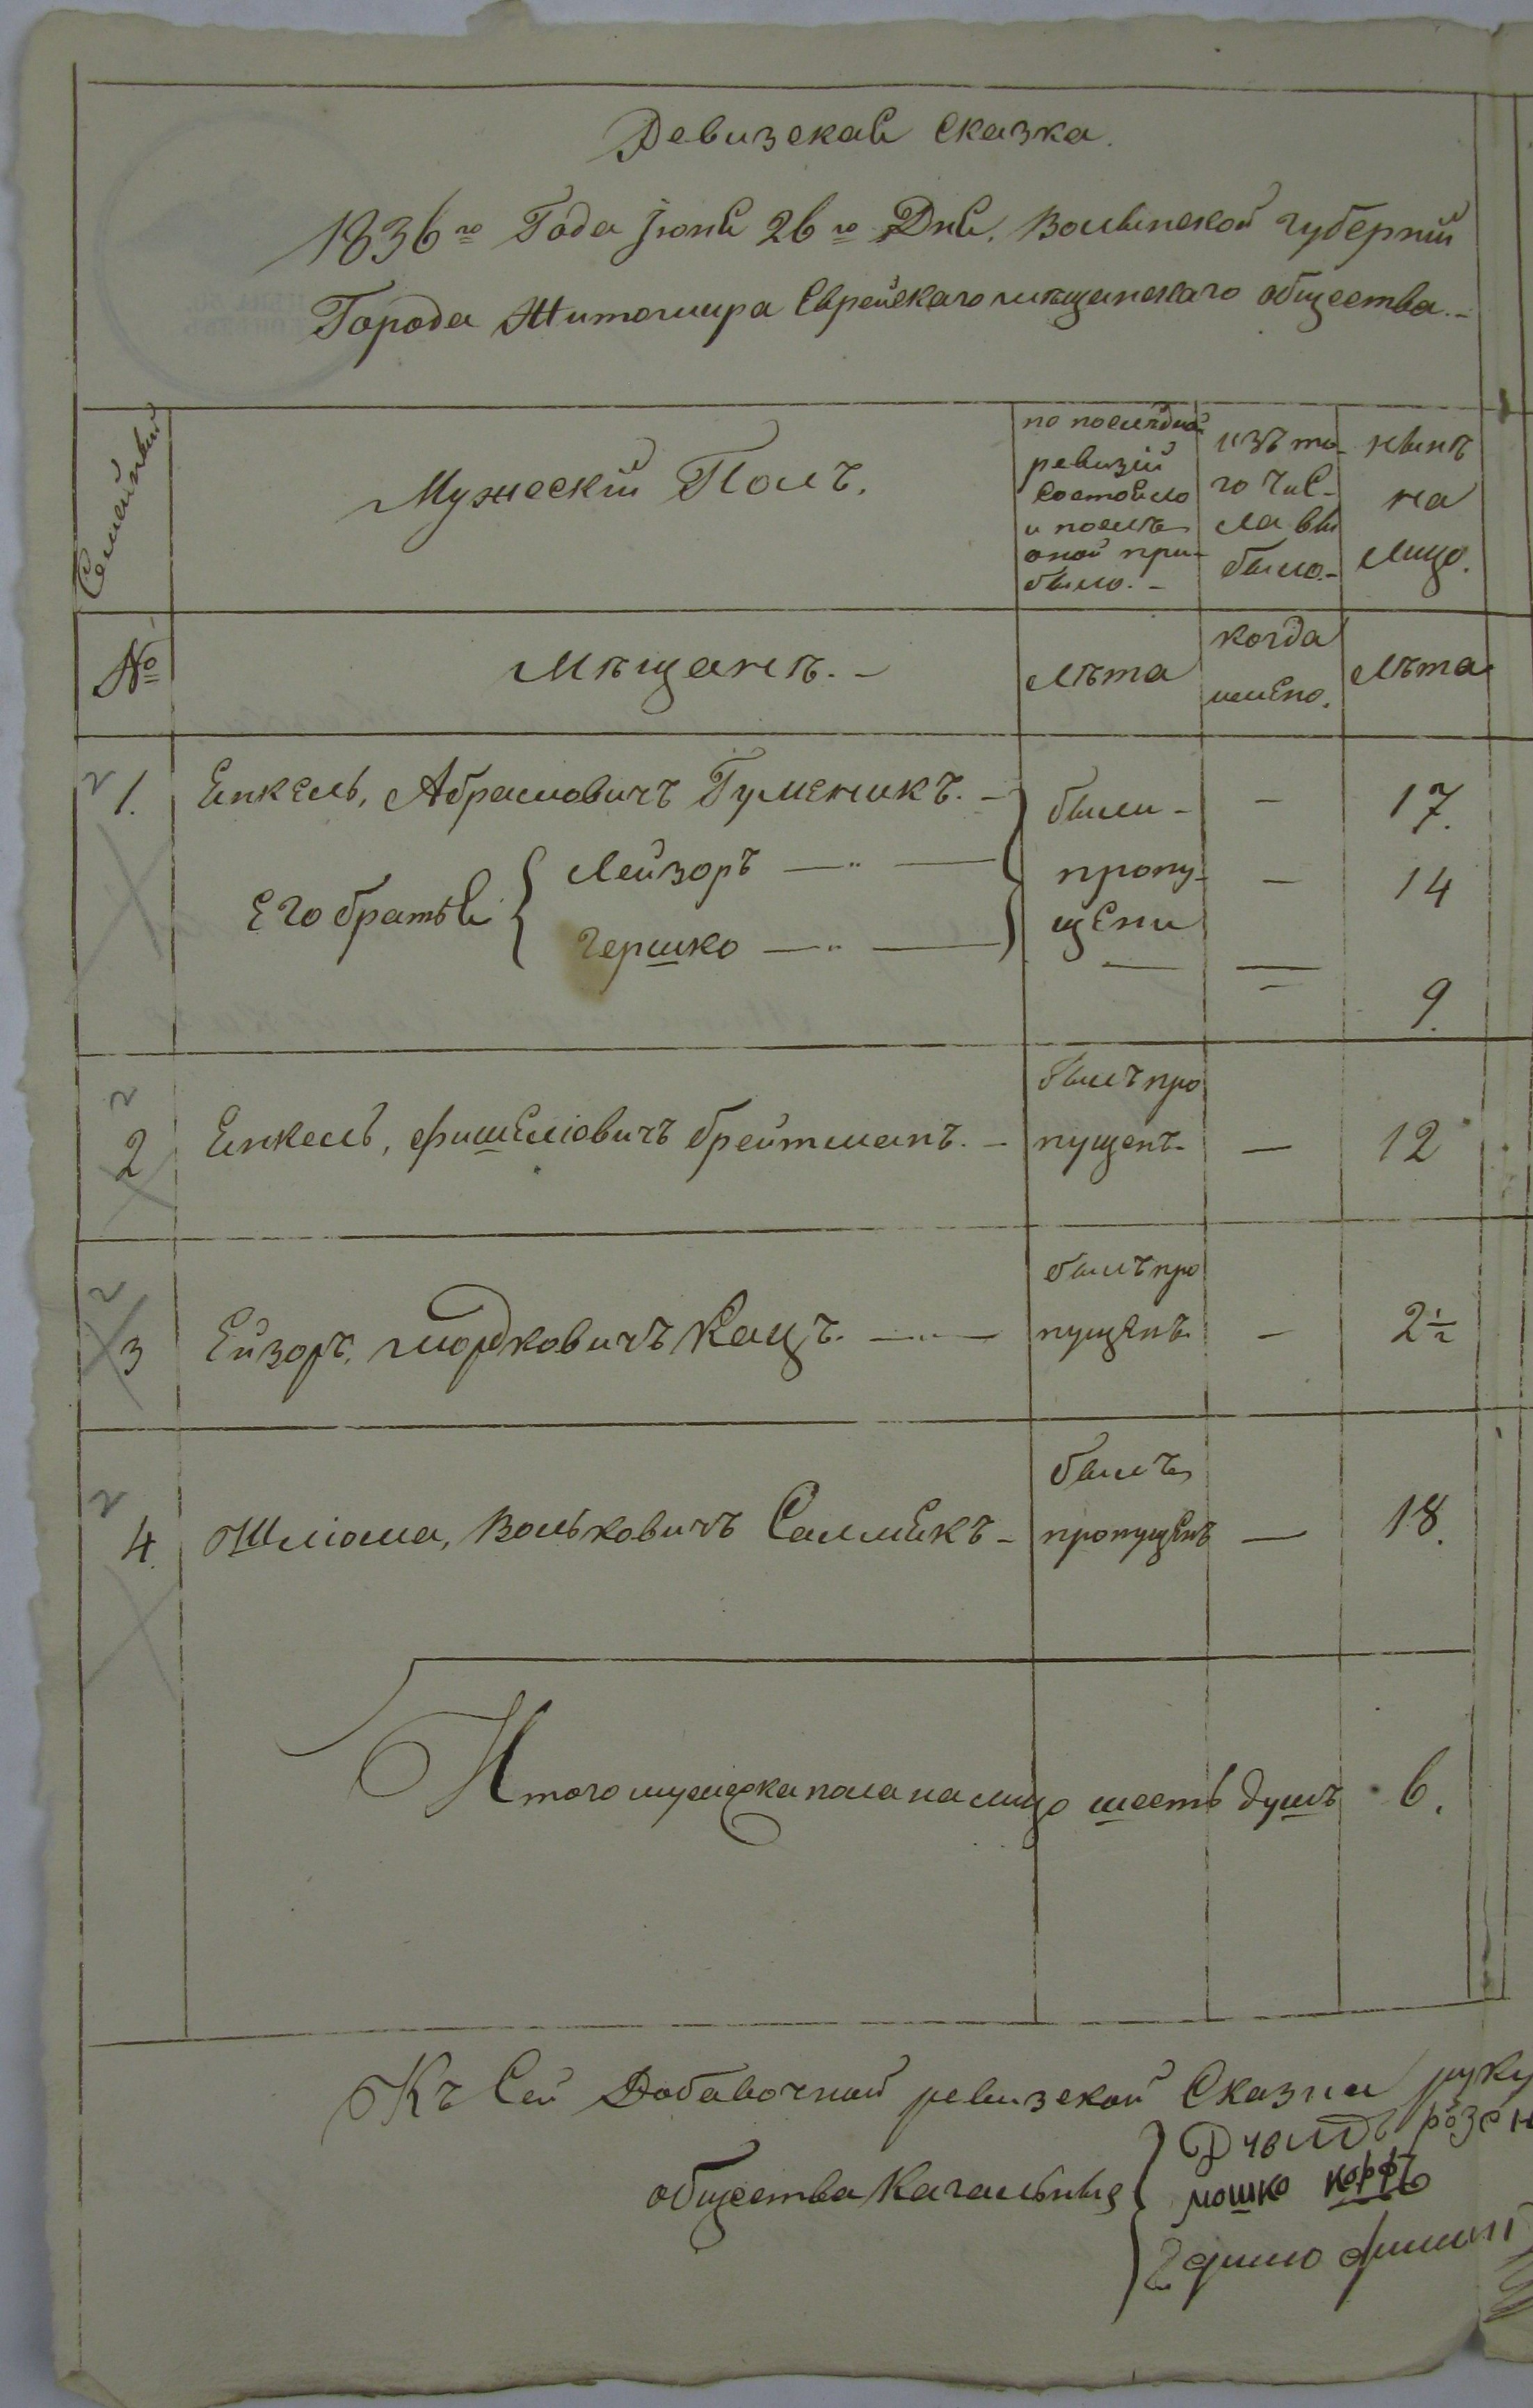 Ревизская Сказка.
1836го Года Іюня 26го Дня. Волынской губерніи
Города Житомира Еврейскаго мѣщанскаго общества.-
Семейный
Мужескій Полъ.
по послѣдной
ревизіи
состояло
и послѣ
оной при-
было.-
изъ то-
го чис-
ла вы
было.-
нынѣ
на
лицо.
№
Мѣщанѣ.-
лѣта
когда
имено.
Лѣта
1.
Енкель, Абрамовичъ Гуменикъ.-
были-
-
17.
Его братья
Лейзоръ —"—
пропу-
-
14
гершко —"—
щени
9.
2
Енкель, фишеліовичъ брейтманъ.-
былъ про
пущенъ-
—
12
3
Ейзоръ, мордковичъ Кацъ. —"—
былъ про
пущенъ
-
2½
4.
Шліома, Вольковичъ Салмекъ-
былъ
пропущенъ
—
18.
Итого мужеска пола на лицо шесть душъ
6.
Къ Сей Добавочной ревизской Сказки руку
общества Кагальные
розен
мошко корфъ